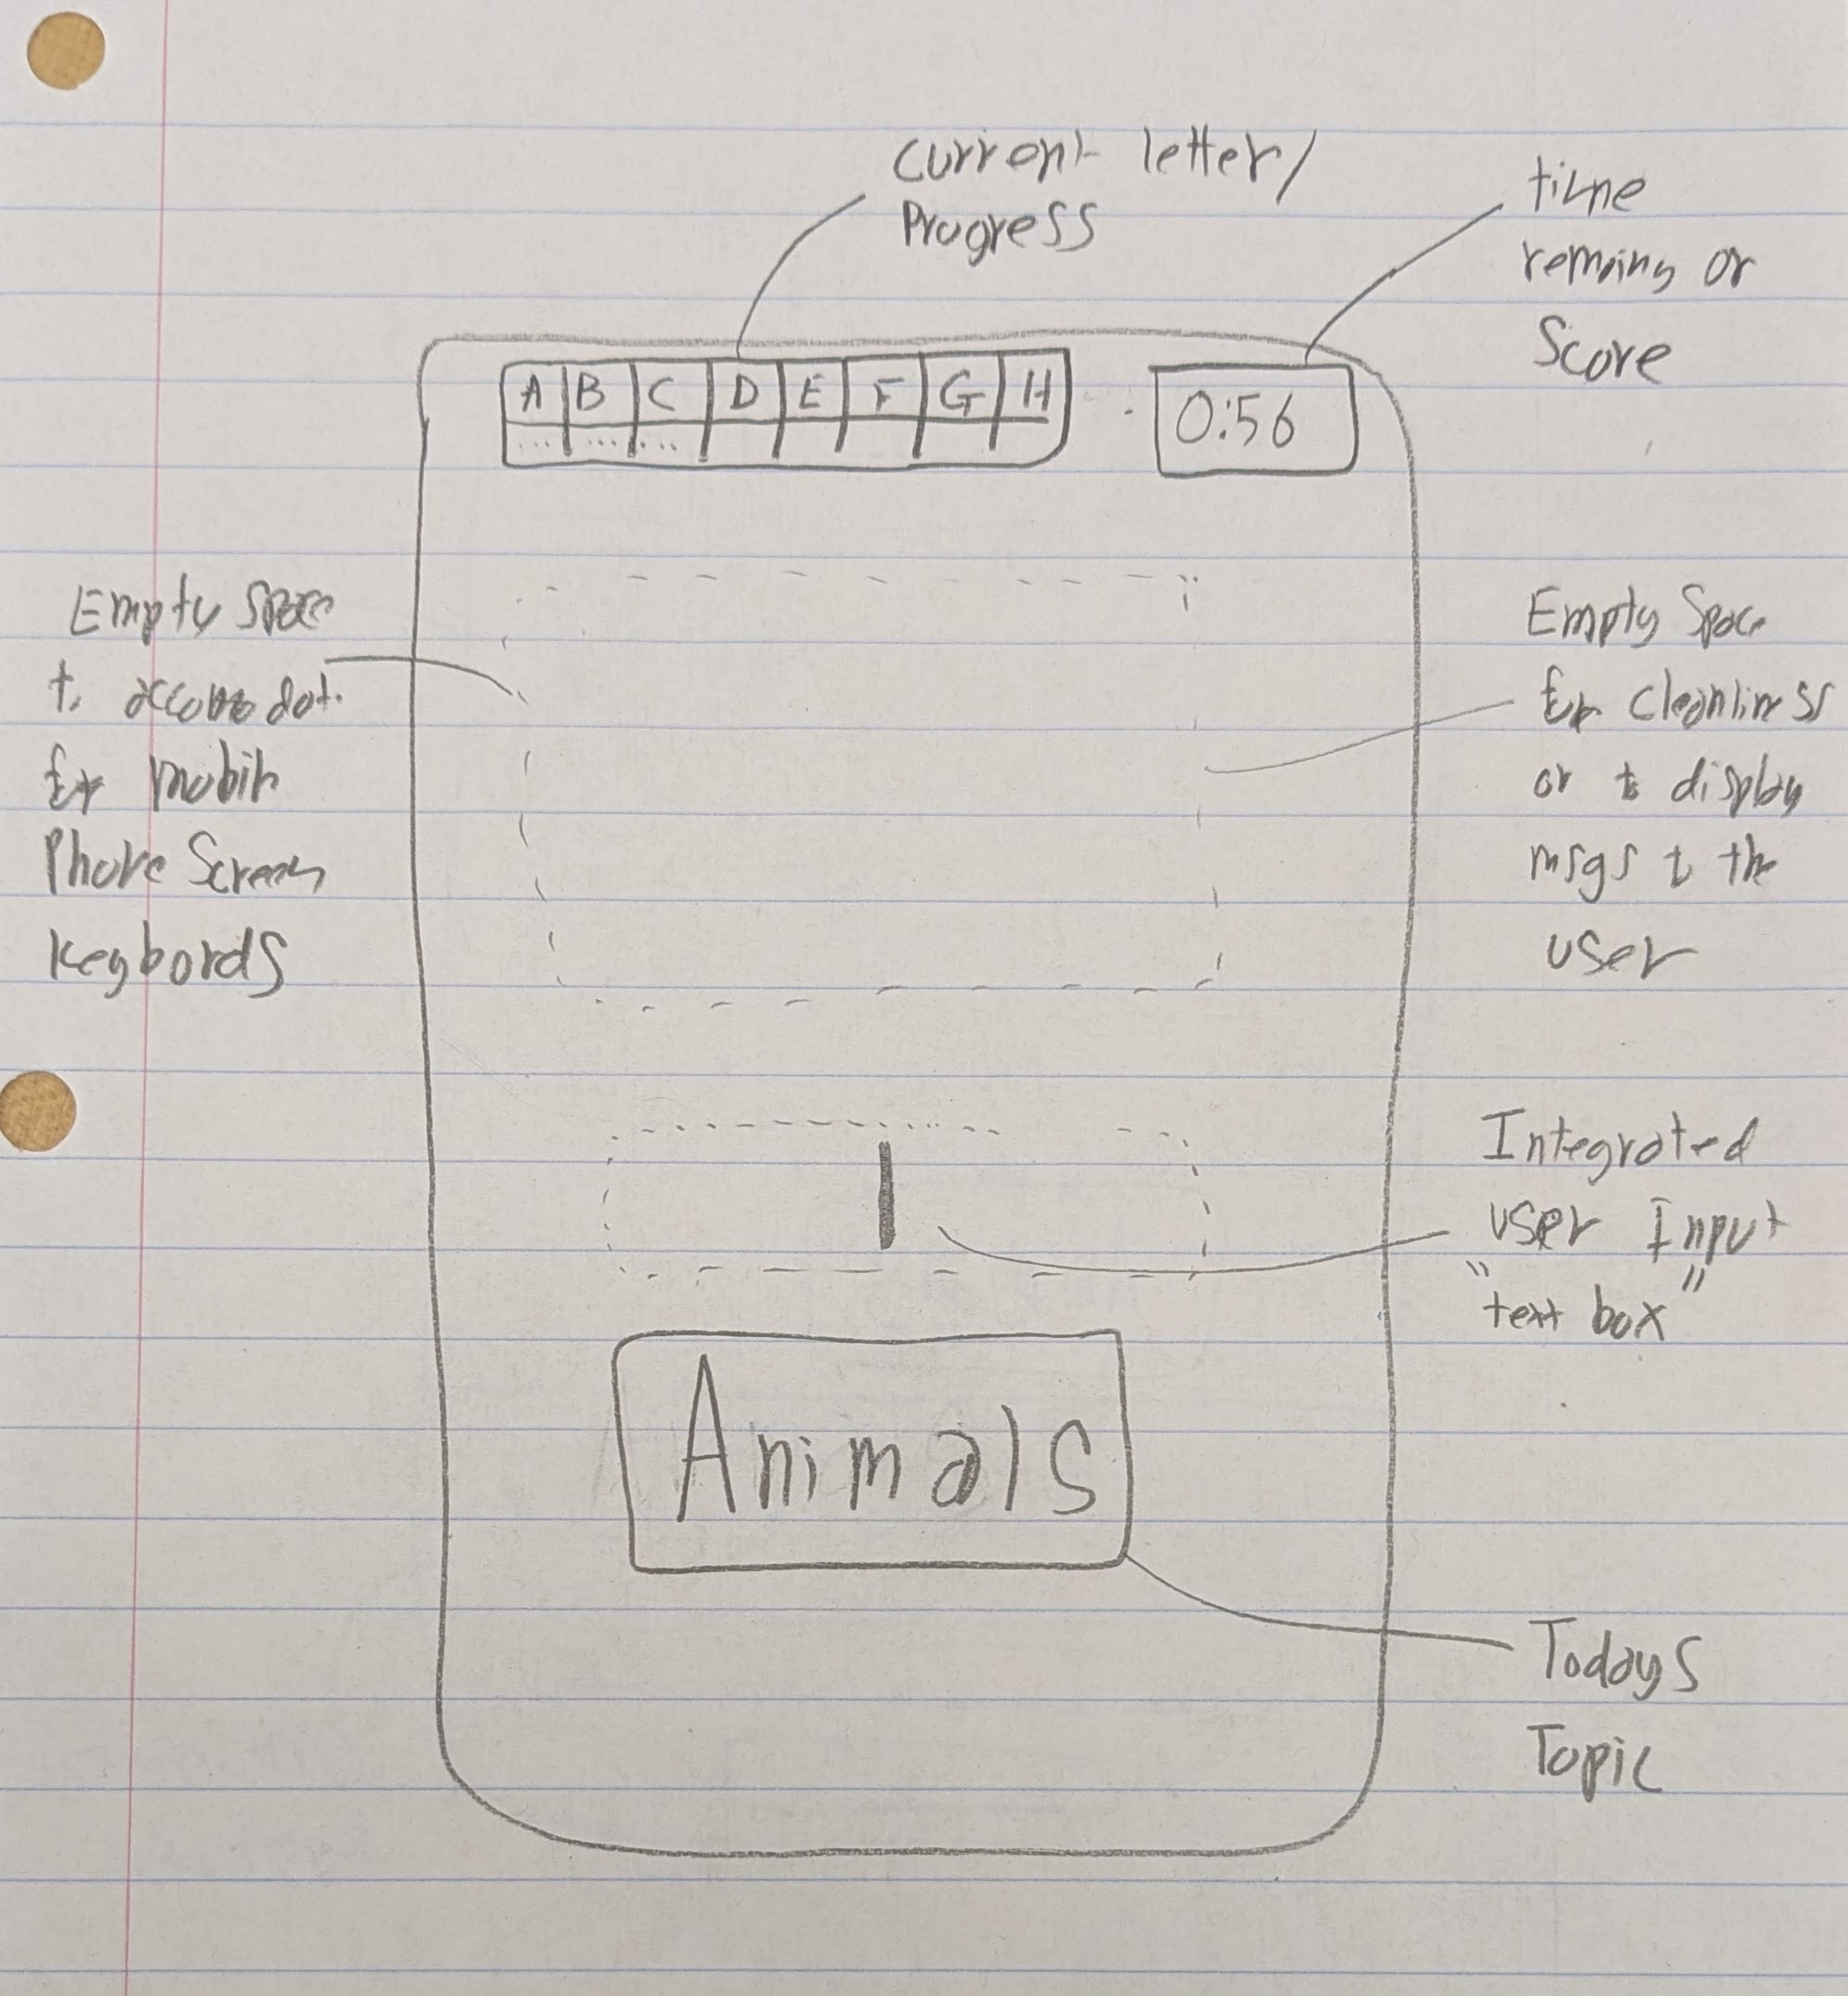 Current letter/
Progress
time
remaing or
Score
A B C D E F G H
... ... ...
0:56
Empty Space
to accomodat.
for mobile
Phone Screen
Keybords
Empty Space
for cleanliness
or to display
msgs to the
user
Integrated
user Input
"text box"
Animals
Todays
Topic